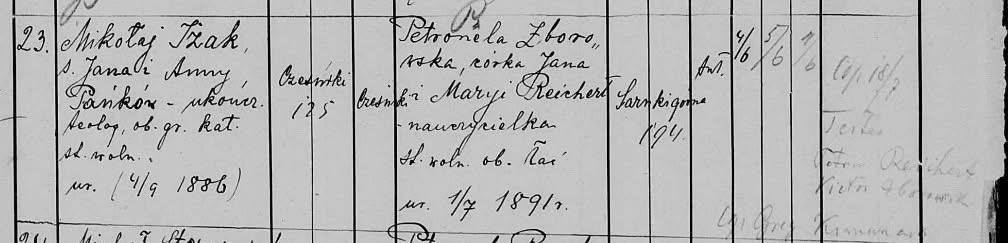 23. Mikołaj Iżak,
s. Jana i Anny
Pańków - ukończ.
teolog, ob. gr. kat.
st. woln.
ur. (4/9 1886)
175
Petronela Zboro„
wska, córka Jana
i Maryi Reichert
- nauczycielka
st. woln. ob. łać
ur. 1/7 1891 r.
Sarnki górne
194.
Ant.
4/6 5/6 9/6
Cop 18/7
Testes
Reichert
Victor